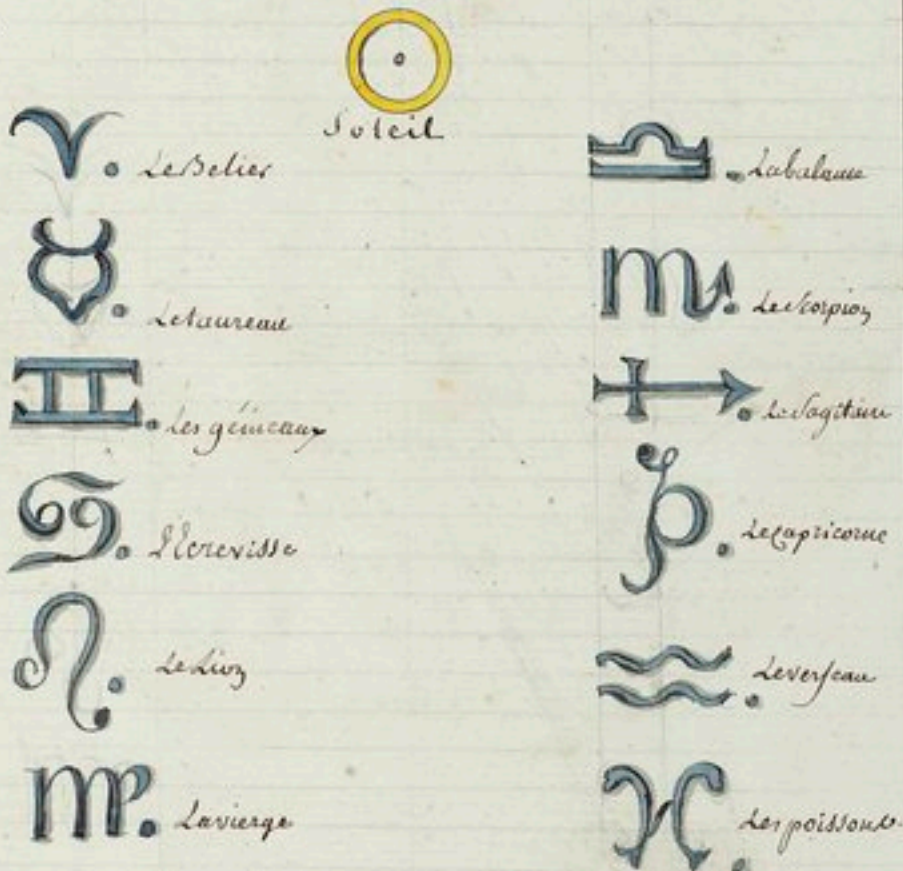 Soleil
Le Belier
Le taureau
Les gémeaux
l'Ecrevisse
Le Lion
La vierge
La balance
Le Scorpion
Le Sagitaire
Le capricorne
Le verseau
Les poissons